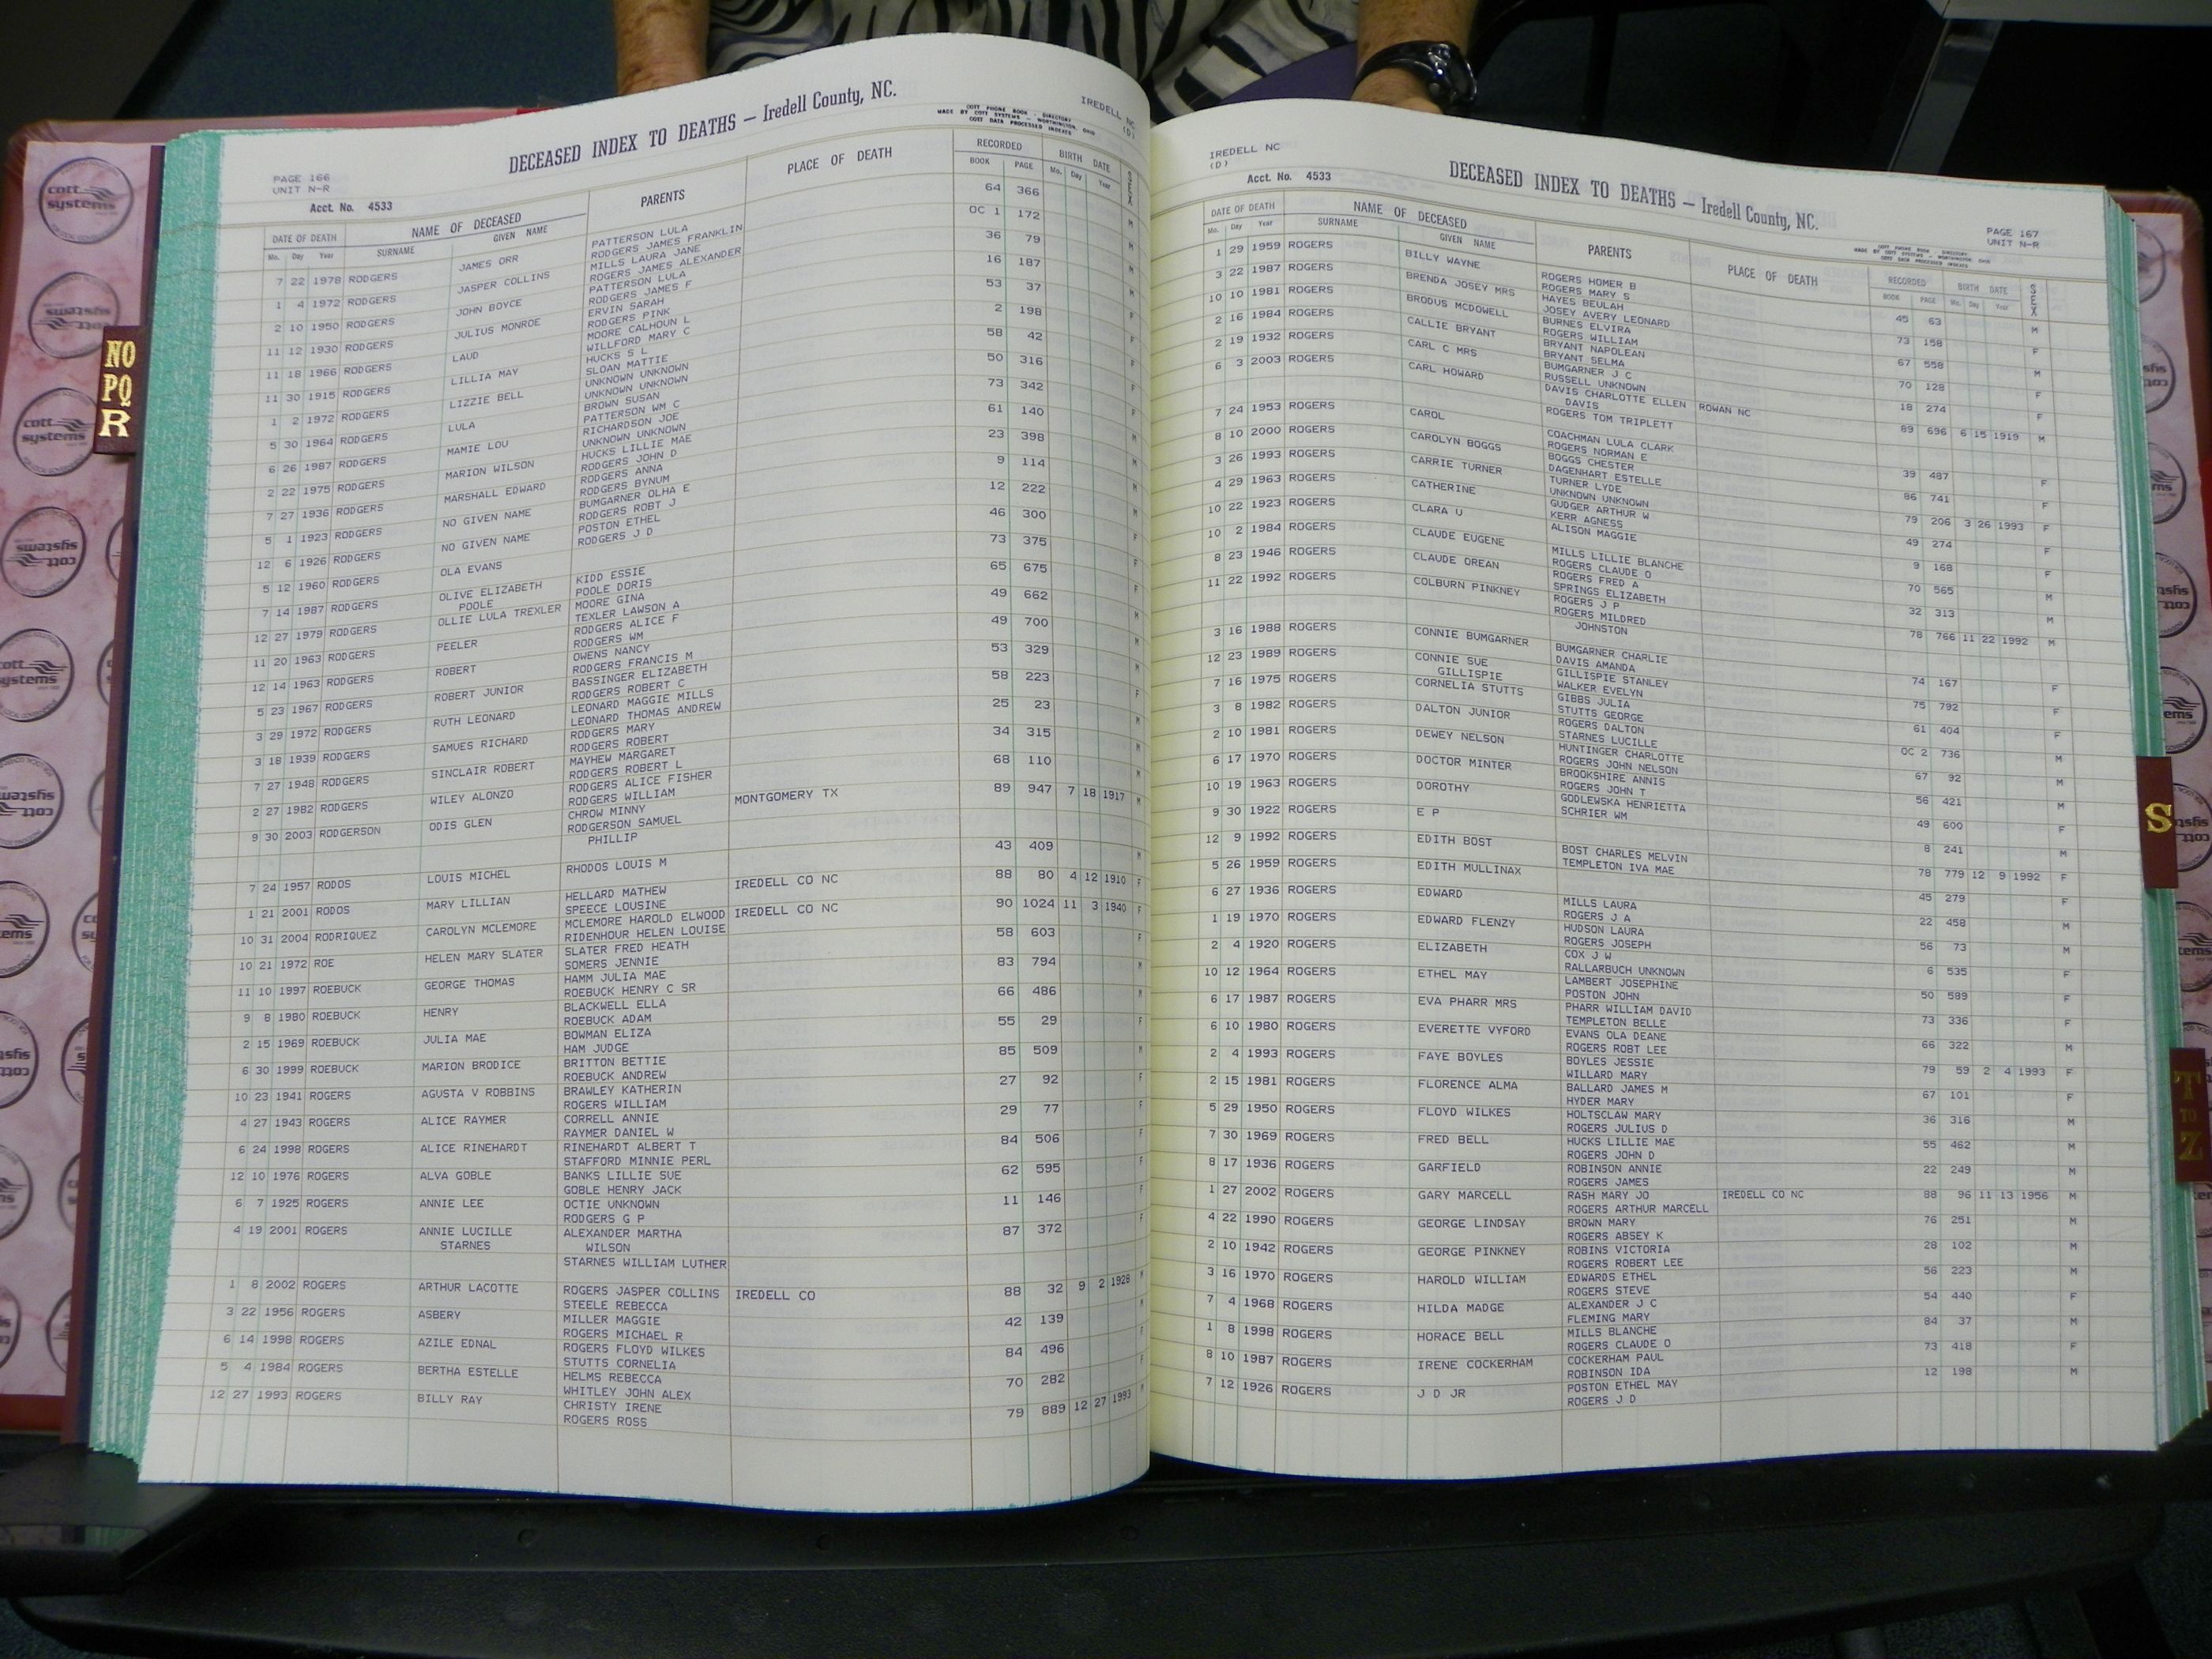 DECEASED INDEX TO DEATHS — Iredell County, NC.
COTT PHONE BOOK - DIRECTORY
MADE BY COTT SYSTEMS - WORTHINGTON, OHIO
COTT DATA PROCESSED INDEXES
IREDELL NC
(D)
PAGE 166
UNIT N-R
Acct. No. 4533
DATE OF DEATH NAME OF DECEASED PARENTS PLACE OF DEATH RECORDED BIRTH DATE SEX
Mo. Day Year SURNAME GIVEN NAME BOOK PAGE Mo. Day Year
7 22 1978 RODGERS JAMES ORR PATTERSON LULA 64 366
RODGERS JAMES FRANKLIN
1 4 1972 RODGERS JASPER COLLINS MILLS LAURA JANE OC 1 172
ROGERS JAMES ALEXANDER
2 10 1950 RODGERS JOHN BOYCE PATTERSON LULA 36 79
RODGERS JAMES F
11 12 1930 RODGERS JULIUS MONROE ERVIN SARAH 16 187
RODGERS PINK
11 18 1966 RODGERS LAUD MOORE CALHOUN L 53 37
WILLFORD MARY C
11 30 1915 RODGERS LILLIA MAY HUCKS S L 2 198
SLOAN MATTIE
1 2 1972 RODGERS LIZZIE BELL UNKNOWN UNKNOWN 58 42
UNKNOWN UNKNOWN
5 30 1964 RODGERS LULA BROWN SUSAN 50 316
PATTERSON WM C
6 26 1987 RODGERS MAMIE LOU RICHARDSON JOE 73 342
UNKNOWN UNKNOWN
2 22 1975 RODGERS MARION WILSON HUCKS LILLIE MAE 61 140
RODGERS JOHN D
7 27 1936 RODGERS MARSHALL EDWARD RODGERS ANNA 23 398
RODGERS BYNUM
5 1 1923 RODGERS NO GIVEN NAME BUMGARNER OLHA E 9 114
RODGERS ROBT J
12 6 1926 RODGERS NO GIVEN NAME POSTON ETHEL 12 222
RODGERS J D
5 12 1960 RODGERS OLA EVANS 46 300
7 14 1987 RODGERS OLIVE ELIZABETH KIDD ESSIE 73 375
POOLE POOLE DORIS
12 27 1979 RODGERS OLLIE LULA TREXLER MOORE GINA 65 675
TEXLER LAWSON A
11 20 1963 RODGERS PEELER RODGERS ALICE F 49 662
RODGERS WM
12 14 1963 RODGERS ROBERT OWENS NANCY 49 700
RODGERS FRANCIS M
5 23 1967 RODGERS ROBERT JUNIOR BASSINGER ELIZABETH 53 329
RODGERS ROBERT C
3 29 1972 RODGERS RUTH LEONARD LEONARD MAGGIE MILLS 58 223
LEONARD THOMAS ANDREW
3 18 1939 RODGERS SAMUES RICHARD RODGERS MARY 25 23
RODGERS ROBERT
7 27 1948 RODGERS SINCLAIR ROBERT MAYHEW MARGARET 34 315
RODGERS ROBERT L
2 27 1982 RODGERS WILEY ALONZO RODGERS ALICE FISHER 68 110
RODGERS WILLIAM
9 30 2003 RODGERSON ODIS GLEN CHROW MINNY MONTGOMERY TX 89 947 7 18 1917 M
RODGERSON SAMUEL
PHILLIP
7 24 1957 RODOS LOUIS MICHEL RHODOS LOUIS M 43 409 M
1 21 2001 RODOS MARY LILLIAN HELLARD MATHEW IREDELL CO NC 88 80 4 12 1910 F
SPEECE LOUSINE
10 31 2004 RODRIQUEZ CAROLYN MCLEMORE MCLEMORE HAROLD ELWOOD IREDELL CO NC 90 1024 11 3 1940 F
RIDENHOUR HELEN LOUISE
10 21 1972 ROE HELEN MARY SLATER SLATER FRED HEATH 58 603 F
SOMERS JENNIE
11 10 1997 ROEBUCK GEORGE THOMAS HAMM JULIA MAE 83 794 M
ROEBUCK HENRY C SR
9 8 1980 ROEBUCK HENRY BLACKWELL ELLA 66 486 M
ROEBUCK ADAM
2 15 1969 ROEBUCK JULIA MAE BOWMAN ELIZA 55 29 F
HAM JUDGE
6 30 1999 ROEBUCK MARION BRODICE BRITTON BETTIE 85 509 M
ROEBUCK ANDREW
10 23 1941 ROGERS AGUSTA V ROBBINS BRAWLEY KATHERIN 27 92 F
ROGERS WILLIAM
4 27 1943 ROGERS ALICE RAYMER CORRELL ANNIE 29 77 F
RAYMER DANIEL W
6 24 1998 ROGERS ALICE RINEHARDT RINEHARDT ALBERT T 84 506 F
STAFFORD MINNIE PERL
12 10 1976 ROGERS ALVA GOBLE BANKS LILLIE SUE 62 595 F
GOBLE HENRY JACK
6 7 1925 ROGERS ANNIE LEE OCTIE UNKNOWN 11 146 F
RODGERS G P
4 19 2001 ROGERS ANNIE LUCILLE ALEXANDER MARTHA 87 372 F
STARNES WILSON
STARNES WILLIAM LUTHER
1 8 2002 ROGERS ARTHUR LACOTTE ROGERS JASPER COLLINS IREDELL CO 88 32 9 2 1928 M
STEELE REBECCA
3 22 1956 ROGERS ASBERY MILLER MAGGIE 42 139 M
ROGERS MICHAEL R
6 14 1998 ROGERS AZILE EDNAL ROGERS FLOYD WILKES 84 496 F
STUTTS CORNELIA
5 4 1984 ROGERS BERTHA ESTELLE HELMS REBECCA 70 282 F
WHITLEY JOHN ALEX
12 27 1993 ROGERS BILLY RAY CHRISTY IRENE 79 889 12 27 1993 M
ROGERS ROSS
IREDELL NC
(D)
Acct. No. 4533
DECEASED INDEX TO DEATHS — Iredell County, NC.
PAGE 167
UNIT N-R
DATE OF DEATH NAME OF DECEASED PARENTS PLACE OF DEATH RECORDED BIRTH DATE SEX
Mo. Day Year SURNAME GIVEN NAME BOOK PAGE Mo. Day Year
1 29 1959 ROGERS BILLY WAYNE ROGERS HOMER B 45 63 M
ROGERS MARY S
3 22 1987 ROGERS BRENDA JOSEY MRS HAYES BEULAH 73 158 F
JOSEY AVERY LEONARD
10 10 1981 ROGERS BRODUS MCDOWELL BURNES ELVIRA 67 558 M
ROGERS WILLIAM
2 16 1984 ROGERS CALLIE BRYANT BRYANT NAPOLEAN 70 128 F
BRYANT SELMA
2 19 1932 ROGERS CARL C MRS BUMGARNER J C 18 274 F
RUSSELL UNKNOWN
6 3 2003 ROGERS CARL HOWARD DAVIS CHARLOTTE ELLEN ROWAN NC 89 696 6 15 1919 M
DAVIS
ROGERS TOM TRIPLETT
7 24 1953 ROGERS CAROL COACHMAN LULA CLARK 39 487 F
ROGERS NORMAN E
8 10 2000 ROGERS CAROLYN BOGGS BOGGS CHESTER 86 741 F
DAGENHART ESTELLE
3 26 1993 ROGERS CARRIE TURNER TURNER LYDE 79 206 3 26 1993 F
UNKNOWN UNKNOWN
4 29 1963 ROGERS CATHERINE GUDGER ARTHUR W 49 274 F
KERR AGNESS
10 22 1923 ROGERS CLARA U ALISON MAGGIE 9 168 F
10 2 1984 ROGERS CLAUDE EUGENE MILLS LILLIE BLANCHE 70 565 M
ROGERS CLAUDE O
8 23 1946 ROGERS CLAUDE OREAN ROGERS FRED A 32 313 M
SPRINGS ELIZABETH
11 22 1992 ROGERS COLBURN PINKNEY ROGERS J P 78 766 11 22 1992 M
ROGERS MILDRED
JOHNSTON
3 16 1988 ROGERS CONNIE BUMGARNER BUMGARNER CHARLIE 74 167 F
DAVIS AMANDA
12 23 1989 ROGERS CONNIE SUE GILLISPIE STANLEY 75 792 F
GILLISPIE WALKER EVELYN
7 16 1975 ROGERS CORNELIA STUTTS GIBBS JULIA 61 404 F
STUTTS GEORGE
3 8 1982 ROGERS DALTON JUNIOR ROGERS DALTON OC 2 736 M
STARNES LUCILLE
2 10 1981 ROGERS DEWEY NELSON HUNTINGER CHARLOTTE 67 92 M
ROGERS JOHN NELSON
6 17 1970 ROGERS DOCTOR MINTER BROOKSHIRE ANNIS 56 421 M
ROGERS JOHN T
10 19 1963 ROGERS DOROTHY GODLEWSKA HENRIETTA 49 600 F
SCHRIER WM
9 30 1922 ROGERS E P 8 241 M
12 9 1992 ROGERS EDITH BOST BOST CHARLES MELVIN 78 779 12 9 1992 F
TEMPLETON IVA MAE
5 26 1959 ROGERS EDITH MULLINAX 45 279 F
6 27 1936 ROGERS EDWARD MILLS LAURA 22 458 M
ROGERS J A
1 19 1970 ROGERS EDWARD FLENZY HUDSON LAURA 56 73 M
ROGERS JOSEPH
2 4 1920 ROGERS ELIZABETH COX J W 6 535 F
RALLARBUCH UNKNOWN
10 12 1964 ROGERS ETHEL MAY LAMBERT JOSEPHINE 50 589 F
POSTON JOHN
6 17 1987 ROGERS EVA PHARR MRS PHARR WILLIAM DAVID 73 336 F
TEMPLETON BELLE
6 10 1980 ROGERS EVERETTE VYFORD EVANS OLA DEANE 66 322 M
ROGERS ROBT LEE
2 4 1993 ROGERS FAYE BOYLES BOYLES JESSIE 79 59 2 4 1993 F
WILLARD MARY
2 15 1981 ROGERS FLORENCE ALMA BALLARD JAMES M 67 101 F
HYDER MARY
5 29 1950 ROGERS FLOYD WILKES HOLTSCLAW MARY 36 316 M
ROGERS JULIUS D
7 30 1969 ROGERS FRED BELL HUCKS LILLIE MAE 55 462 M
ROGERS JOHN D
8 17 1936 ROGERS GARFIELD ROBINSON ANNIE 22 249 M
ROGERS JAMES
1 27 2002 ROGERS GARY MARCELL RASH MARY JO IREDELL CO NC 88 96 11 13 1956 M
ROGERS ARTHUR MARCELL
4 22 1990 ROGERS GEORGE LINDSAY BROWN MARY 76 251 M
ROGERS ABSEY K
2 10 1942 ROGERS GEORGE PINKNEY ROBINS VICTORIA 28 102 M
ROGERS ROBERT LEE
3 16 1970 ROGERS HAROLD WILLIAM EDWARDS ETHEL 56 223 M
ROGERS STEVE
7 4 1968 ROGERS HILDA MADGE ALEXANDER J C 54 440 F
FLEMING MARY
1 8 1998 ROGERS HORACE BELL MILLS BLANCHE 84 37 M
ROGERS CLAUDE O
8 10 1987 ROGERS IRENE COCKERHAM COCKERHAM PAUL 73 418 F
ROBINSON IDA
7 12 1926 ROGERS J D JR POSTON ETHEL MAY 12 198 M
ROGERS J D
NO
PQ
R
S
T
TO
Z
cott
systems